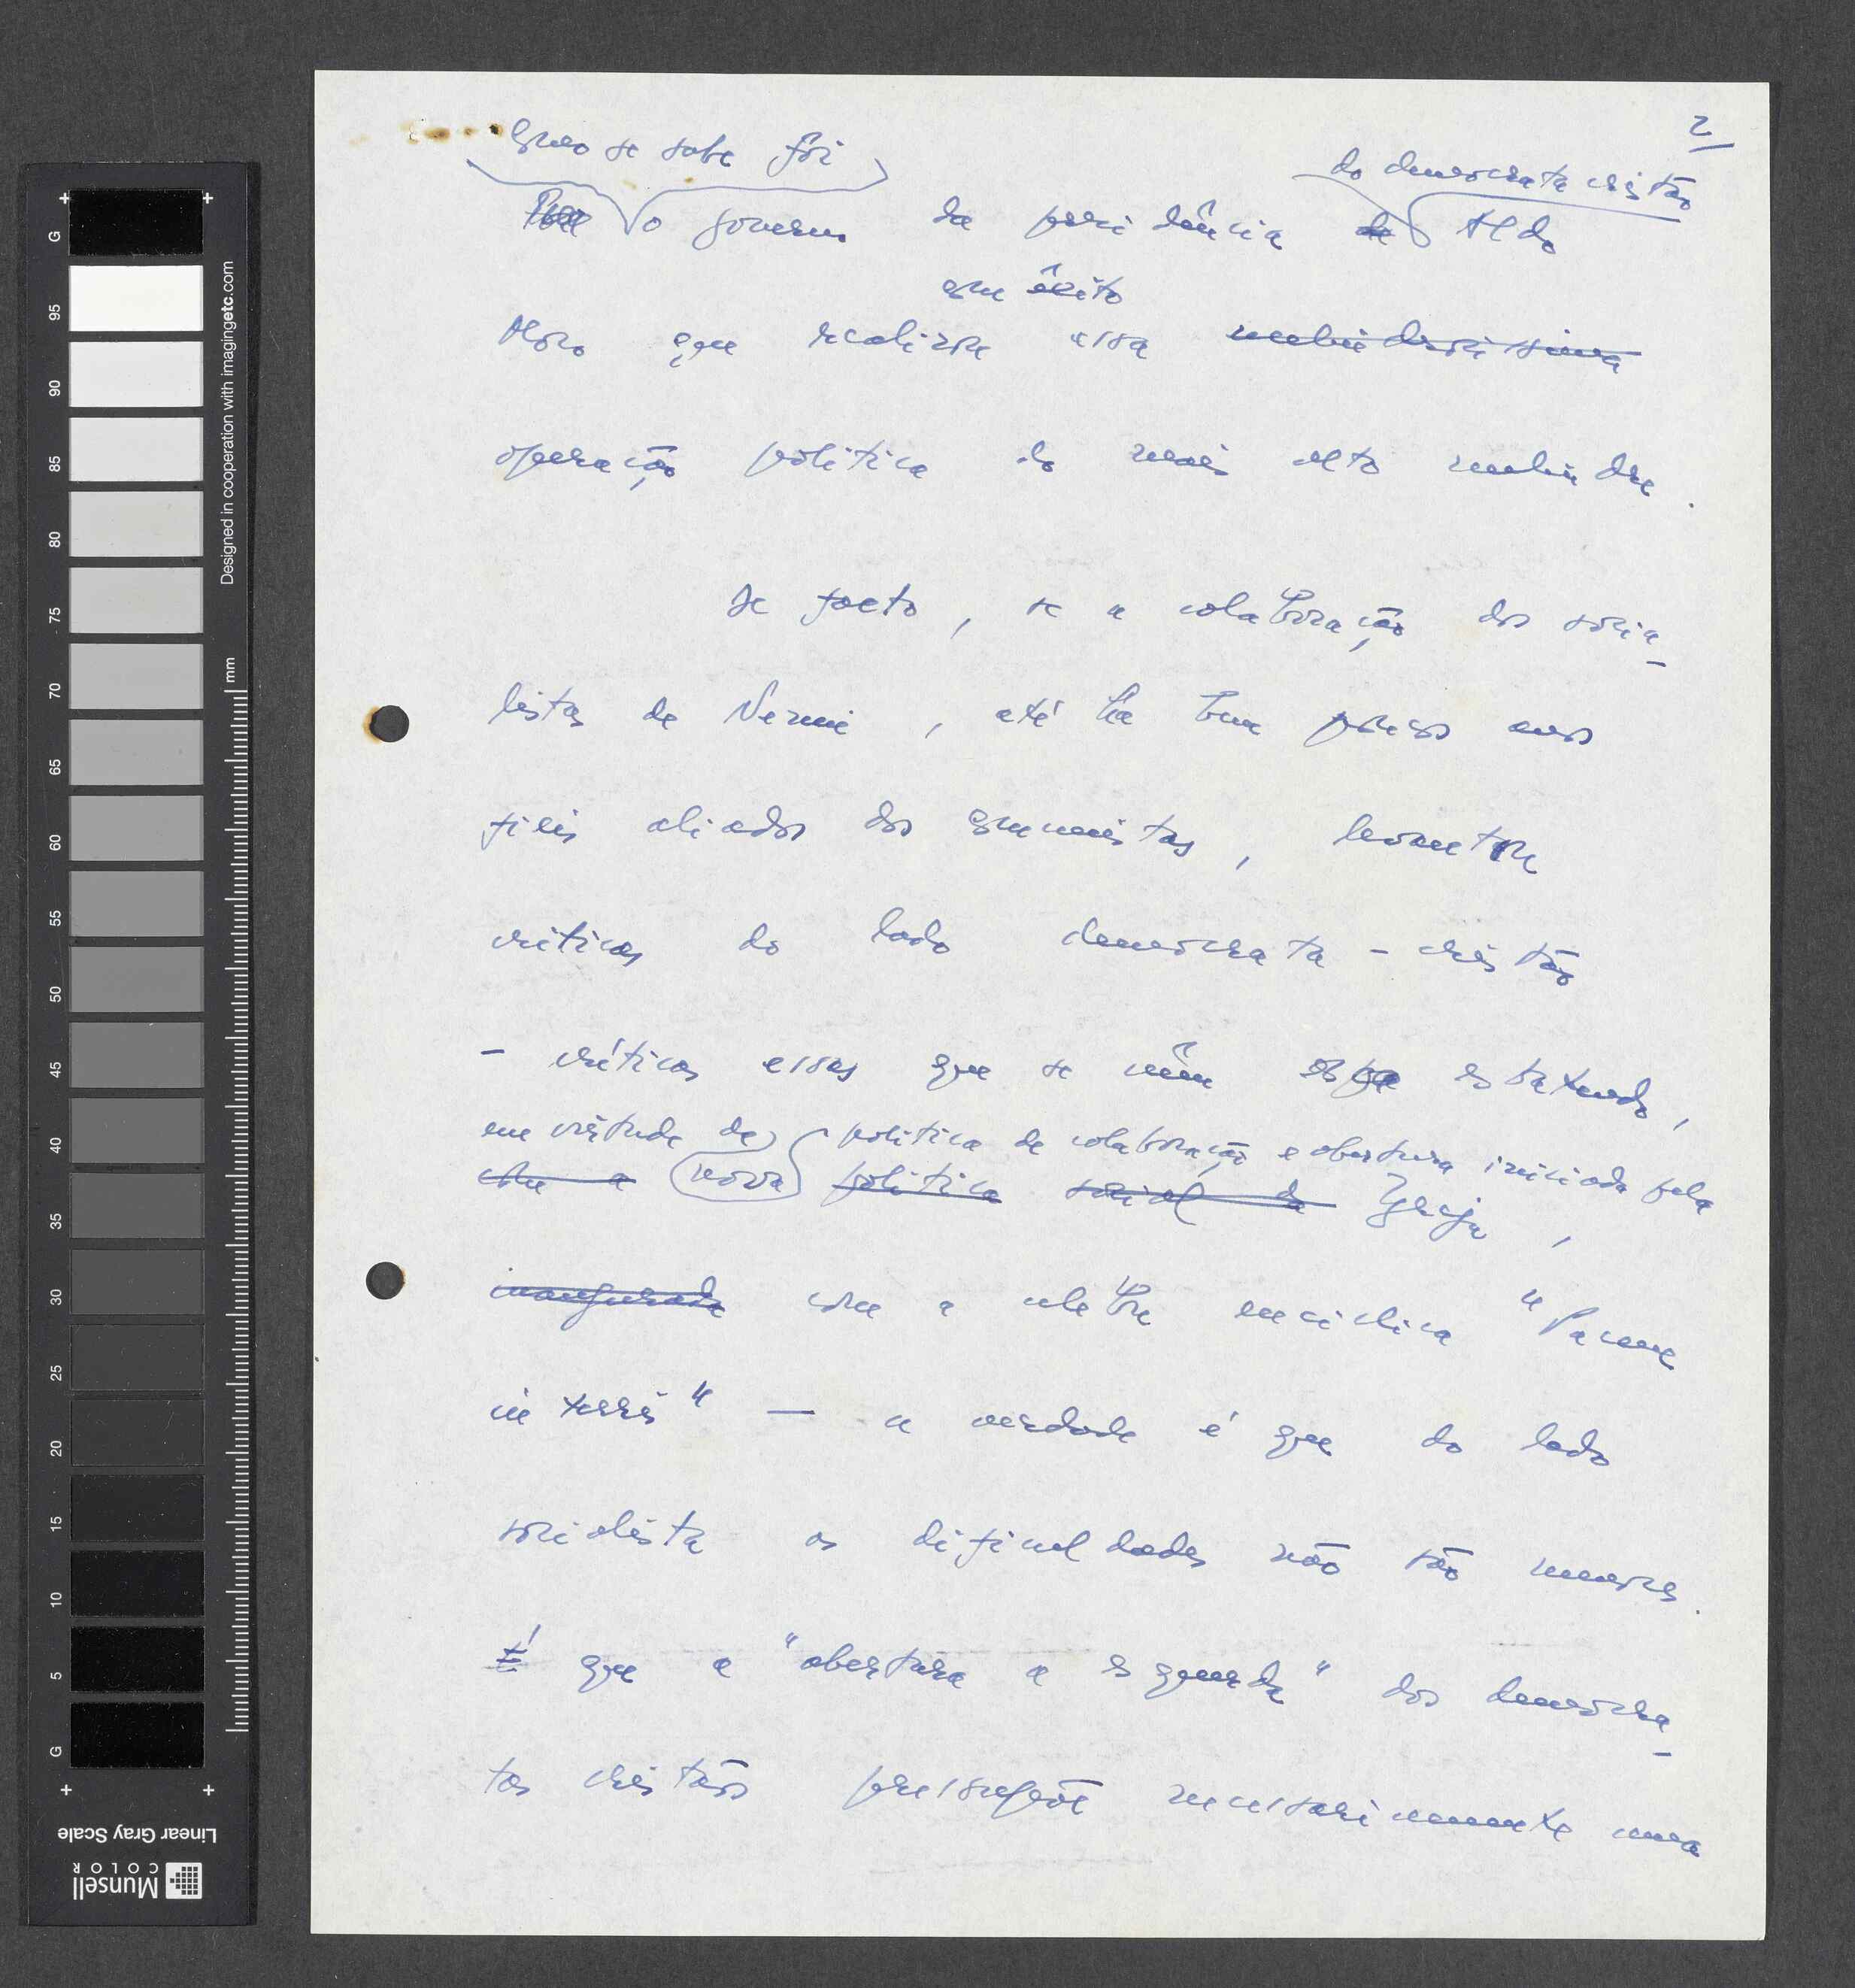 2
Como se sabe foi
do democrata cristão
o governo da presidência de Aldo
com êxito
Moro que realizou essa melindrosissima
operação politica do mais alto melindre.
De facto, se a colaboração dos socia-
listas de Nenni, até há bem poucos anos
fieis aliados dos comunistas, levantou
criticas do lado democrata-cristão
- críticas essas que se vêm esbatendo,
em virtude da política de colaboração e abertura iniciada pela
com a nova politica social da Igreja,
inaugurada com a celebre enciclica "Pacem
in terris" — a verdade é que do lado
socialista as dificuldades não são menores.
É que a "abertura a esquerda" dos democra-
tas cristãos pressupõe necessariamente uma
G
95
90
85
80
75
70
65
60
55
50
45
40
35
30
25
20
15
10
5
G
mm
Designed in cooperation with imagingetc.com
Linear Gray Scale
Munsell
COLOR